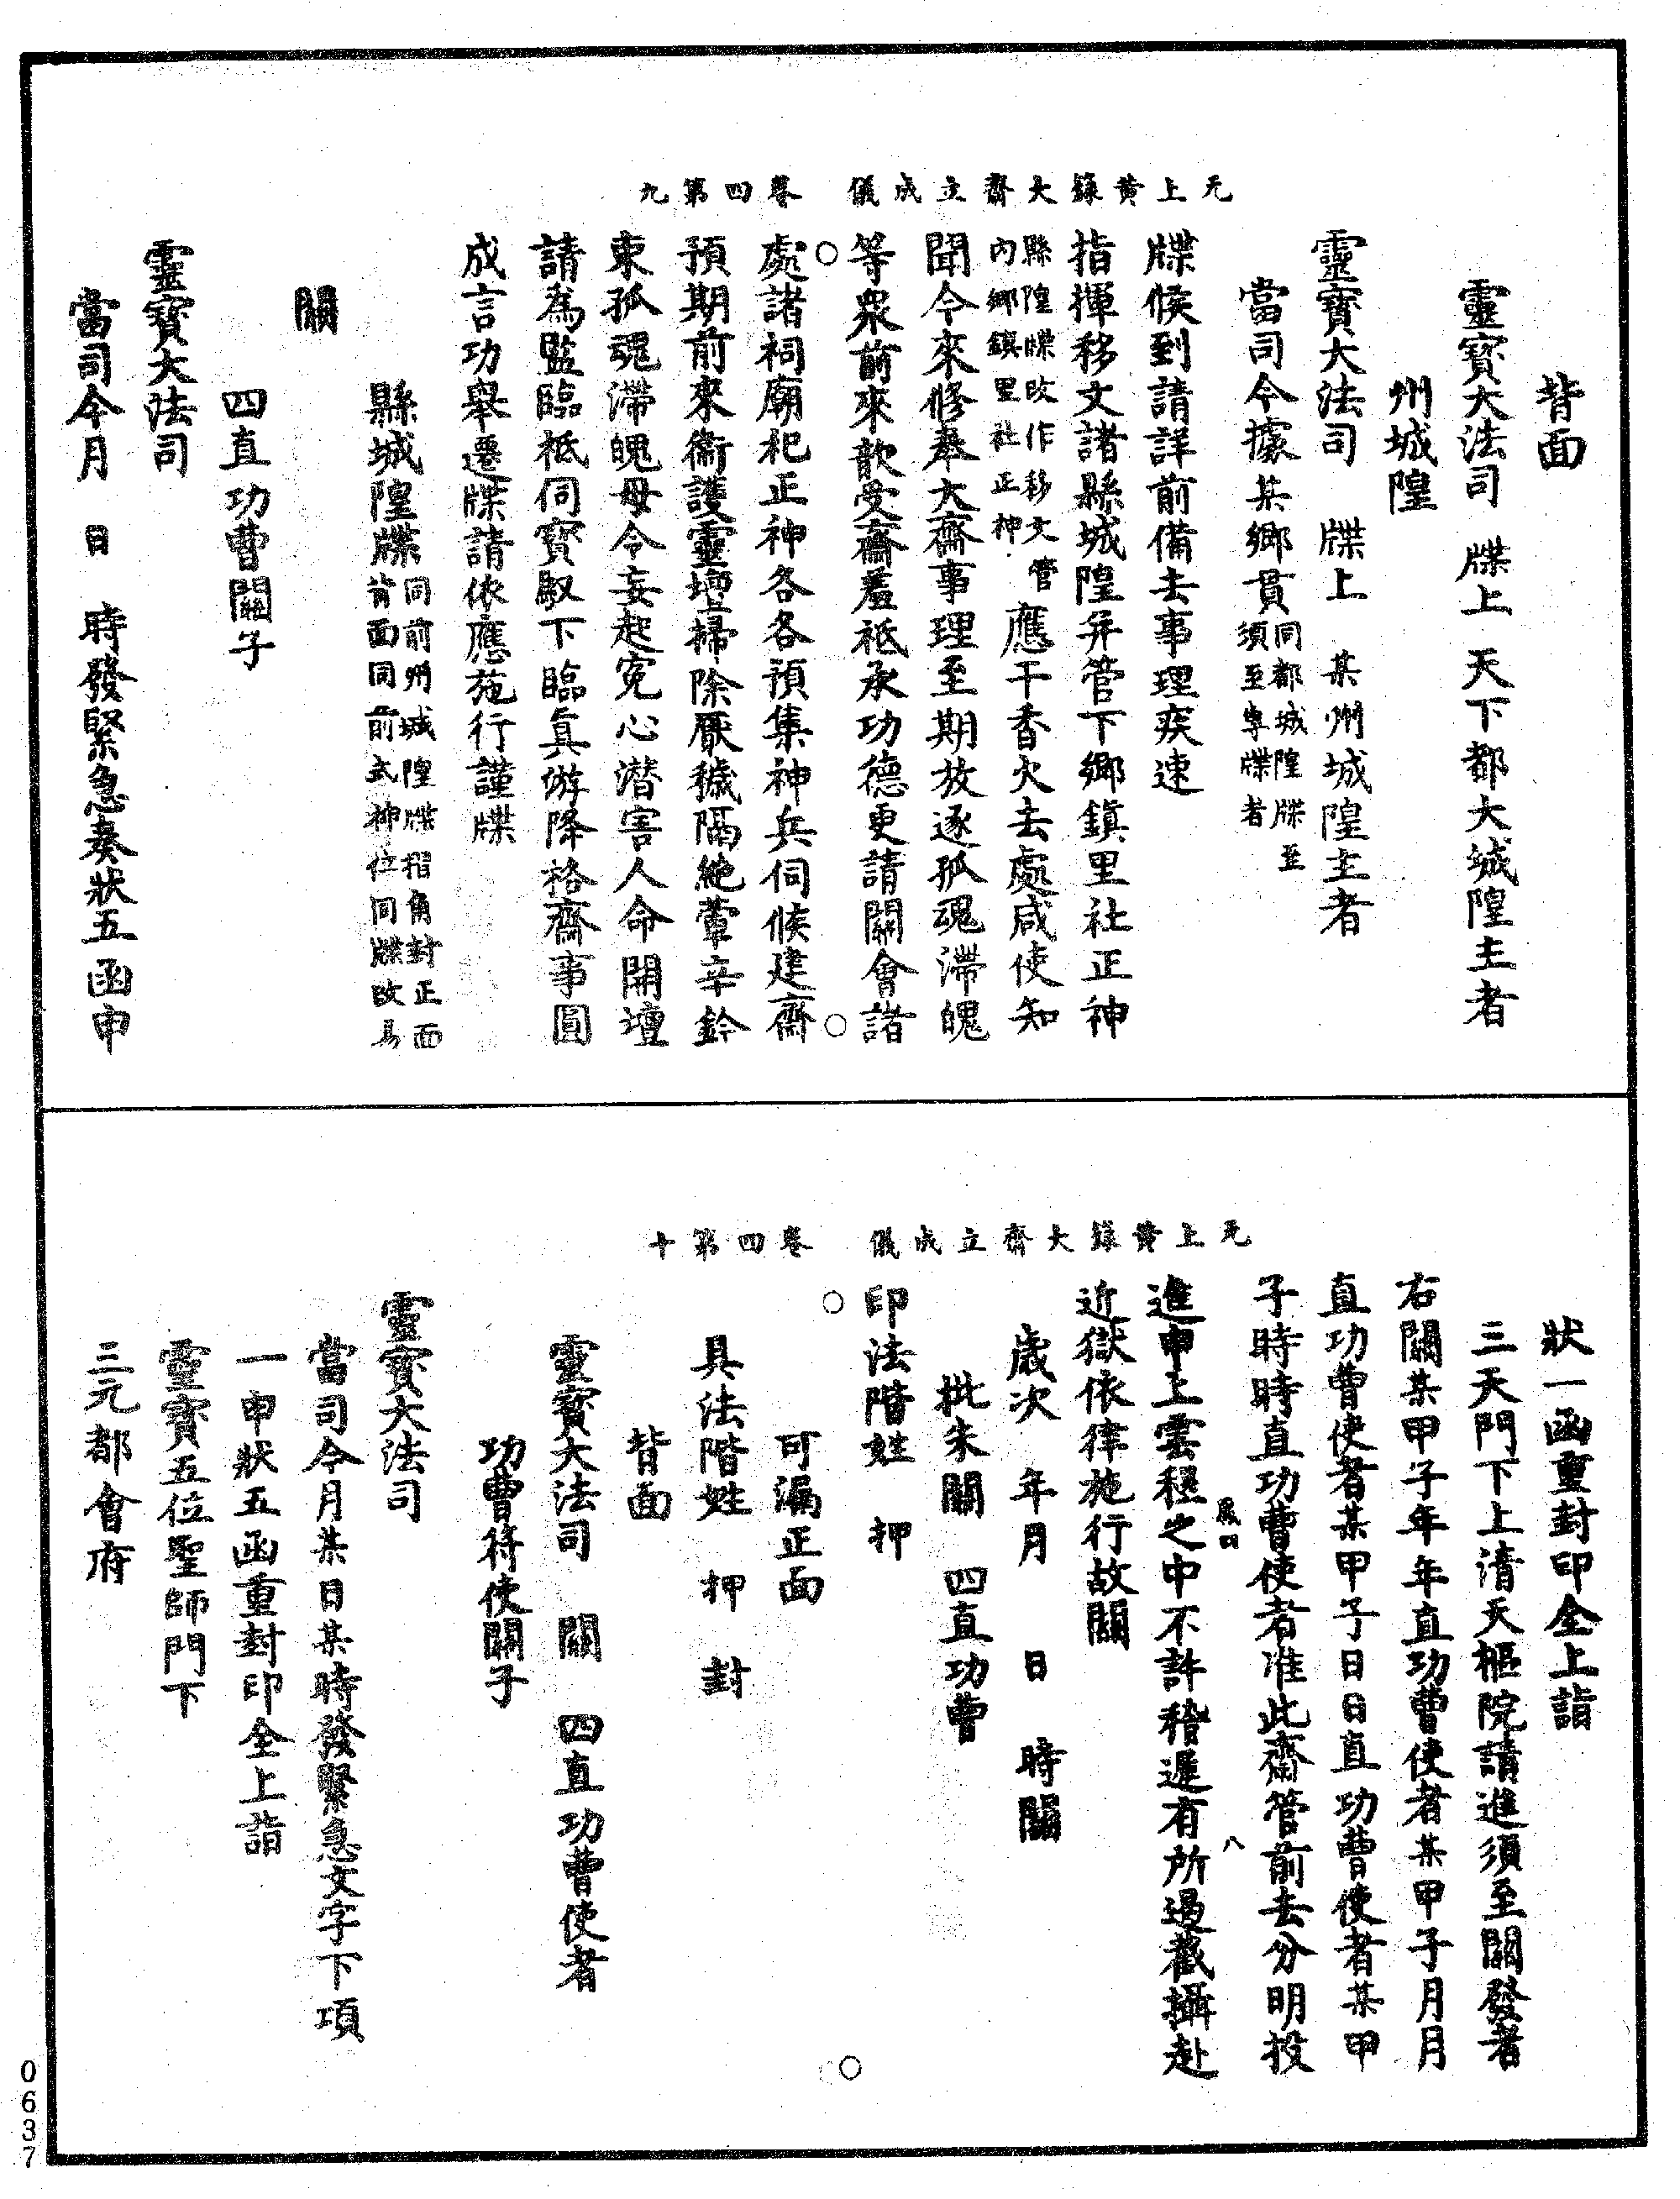 无上黃籙大齋立成儀　卷四第九
背面
靈寶大法司　牒上　天下都大城隍主者
州城隍
靈寶大法司　牒上　某州城隍主者
當司今據某鄉貫同都城隍牒至須至專牒者
牒候到請詳前備去事理疾速
指揮移文諸縣城隍并管下鄉鎮里社正神
縣隍牒改作移文管內鄉鎮里社正神應干香火去處咸使知
聞今來修奉大齋事理至期放逐孤魂滯魄
等衆前來歆受齋羞祇承功德更請關會諸
處諸祠廟祀正神各各預集神兵伺候建齋
預期前來衛護靈壇掃除厭穢隔絶葷辛鈐
束孤魂滯魄毋令妄起寃心潜害人命開壇
請為監臨祇伺寶馭下臨真游降格齋事圓
成言功舉遷牒請依應施行謹牒
縣城隍牒同前州城隍牒摺角封正面背面同前式神位同牒改易
關
四直功曹關子
靈寶大法司
當司今月　日　時發緊急奏狀五函申
无上黃籙大齋立成儀　卷四第十
狀一函重封印全上詣
三天門下上清天樞院請進須至關發者
右關某甲子年年直功曹使者某甲子月月
直功曹使者某甲子日日直功曹使者某甲
子時時直功曹使者准此齋管前去分明投
進申上雲程之中不許稽遲有所遏截攝赴
近獄依律施行故關
歲次　年月　日　時關
批朱關　四直功曹
印法階姓　押
可漏正面
具法階姓　押　封
背面
靈寶大法司　關　四直功曹使者
功曹符使關子
靈寶大法司
當司今月某日某時發緊急文字下項
一申狀五函重封印全上詣
靈寶五位聖師門下
三元都會府
八
0637